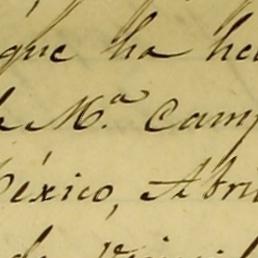 que ha he
M.ª Camp
México, Abri
de